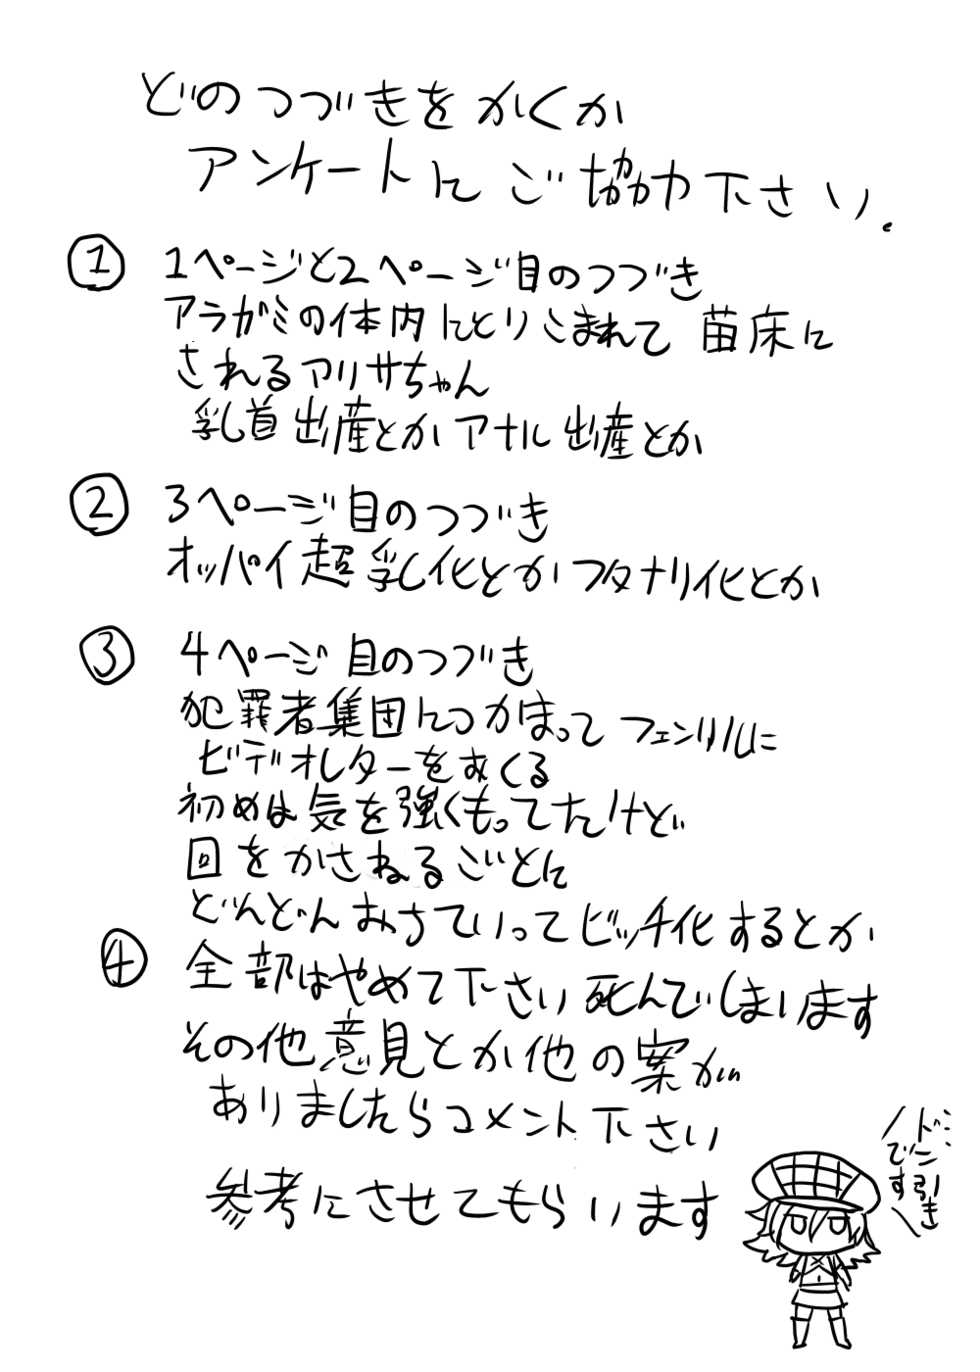 どのつづきをかくか
アンケートにご協力下さい.
① 1ページと2ページ目のつづき
アラガミの体内にとりこまれて 苗床に
されるアリサちゃん
乳首出産とかアナル出産とか
② 3ページ目のつづき
オッパイ超乳化とかフタナリ化とか
③ 4ページ目のつづき
犯罪者集団につかまってフェンリルに
ビデオレターをおくる
初めは気を強くもってたけど
回をかさねるごとに
どんどんおちていってビッチ化するとか
④ 全部はやめて下さい死んでしまいます
その他意見とか他の案が
ありましたらコメント下さい
参考にさせてもらいます
ドン引き
です